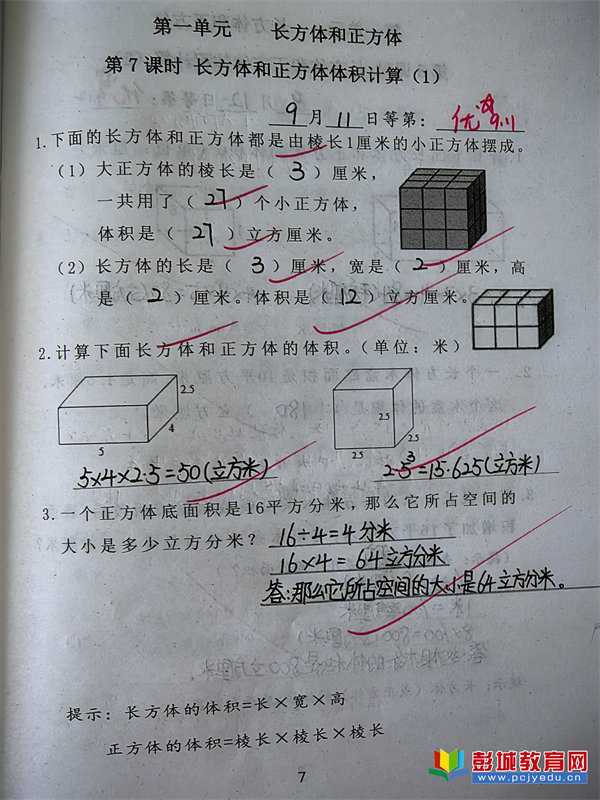 第一单元 长方体和正方体
第7课时 长方体和正方体体积计算（1）
9月11日等第：优
1.下面的长方体和正方体都是由棱长1厘米的小正方体摆成。
（1）大正方体的棱长是（3）厘米，
一共用了（27）个小正方体，
体积是（27）立方厘米。
（2）长方体的长是（3）厘米，宽是（2）厘米，高
是（2）厘米。体积是（12）立方厘米。
2.计算下面长方体和正方体的体积。（单位：米）
2.5
4
5
2.5
2.5
2.5
5×4×2.5=50(立方米)
2.5³=15.625(立方米)
3.一个正方体底面积是16平方分米，那么它所占空间的
大小是多少立方分米？ 16÷4=4分米
16×4=64立方分米
答:那么它所占空间的大小是64立方分米。
提示：长方体的体积=长×宽×高
正方体的体积=棱长×棱长×棱长
7
彭城教育网
www.pcjyedu.cn